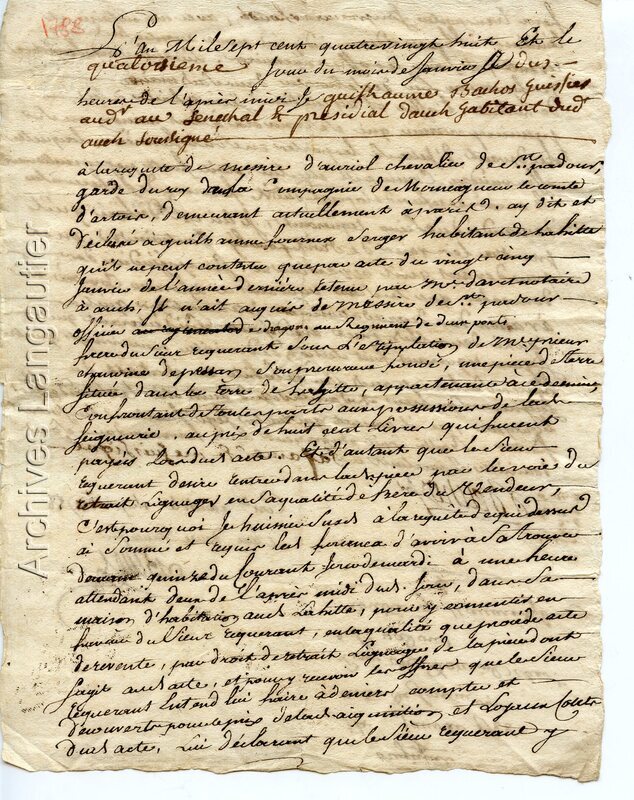 1788
L'an Mil sept cent quatre vingt huit Et le
quatorsieme Jour du mois de Janvier
heures de l'après midi Je guilhaume Bachos
aud. au Senechal & presidial dauch habitant dud.
auch soussigné
à la requete de messire d'auriol chevalier de St. padour,
garde du roy dans la Compagnie de le comte
d'artois, demeurant actuellement à paris. ay dit et
déclaré à guilhaume fourner habitant de lahitte
qu'il ne peut contester que par acte du vingt cinq
Janvier de l'année dernière retenu par Mr. notaire
à auch, Il n'ait acquis de Messire de St. padour
officier de dragons au Regiment de
frere du Sieur requerant Sous L'estipulation de Mr prieur
chanoine de pessan Son procureur fondé, une piece de terre
située dans la terre de lahitte, appartenante à ce dernier,
Confrontant de toutes parts aux possessions de lad.
Seigneurie. au prix de huit cent livres qui furent
payées Lors dud. acte. Et d'autant que le Sieur
requerant desire Entrer dans lad. piece par la voie du
retrait Lignager en Sa qualité de frere du Vendeur,
C'est pourquoi Je huissier Susd. à la requete de qui dessus
ai Sommé et requis led. fourner d'avoir a Se trouver
demain quinze du Courant Jour de mardi à une heure
attendant deux de l'après midi dud. Jour, dans Sa
maison d'habitation aud. Lahitte, pour y consentir en
faveur du Sieur requerant, en la qualité que procède acte
de revente, par droit de retrait Lignager de la piece dont
s'agit aud. acte, et pour y recevoir les offres que le Sieur
requerant Entend lui faire à deniers comptes et
découverts pour le prix de lad. aiquisition et Loyaux Couts
dud. acte, Lui déclarant que le Sieur requerant y
Archives Langautier